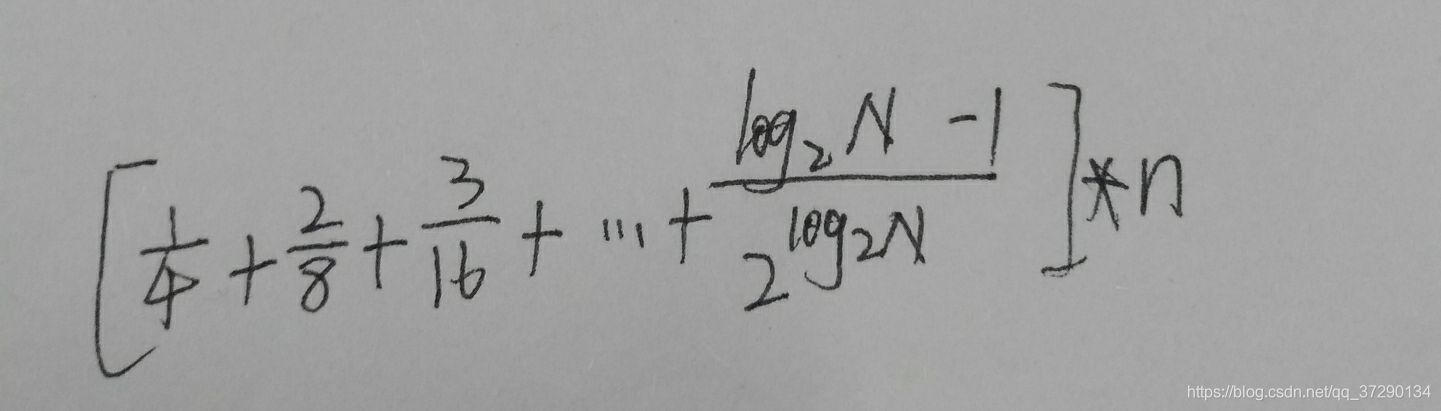 [1/4 + 2/8 + 3/16 + ... + (log₂N - 1)/(2^(log₂N))] * n
https://blog.csdn.net/qq_37290134